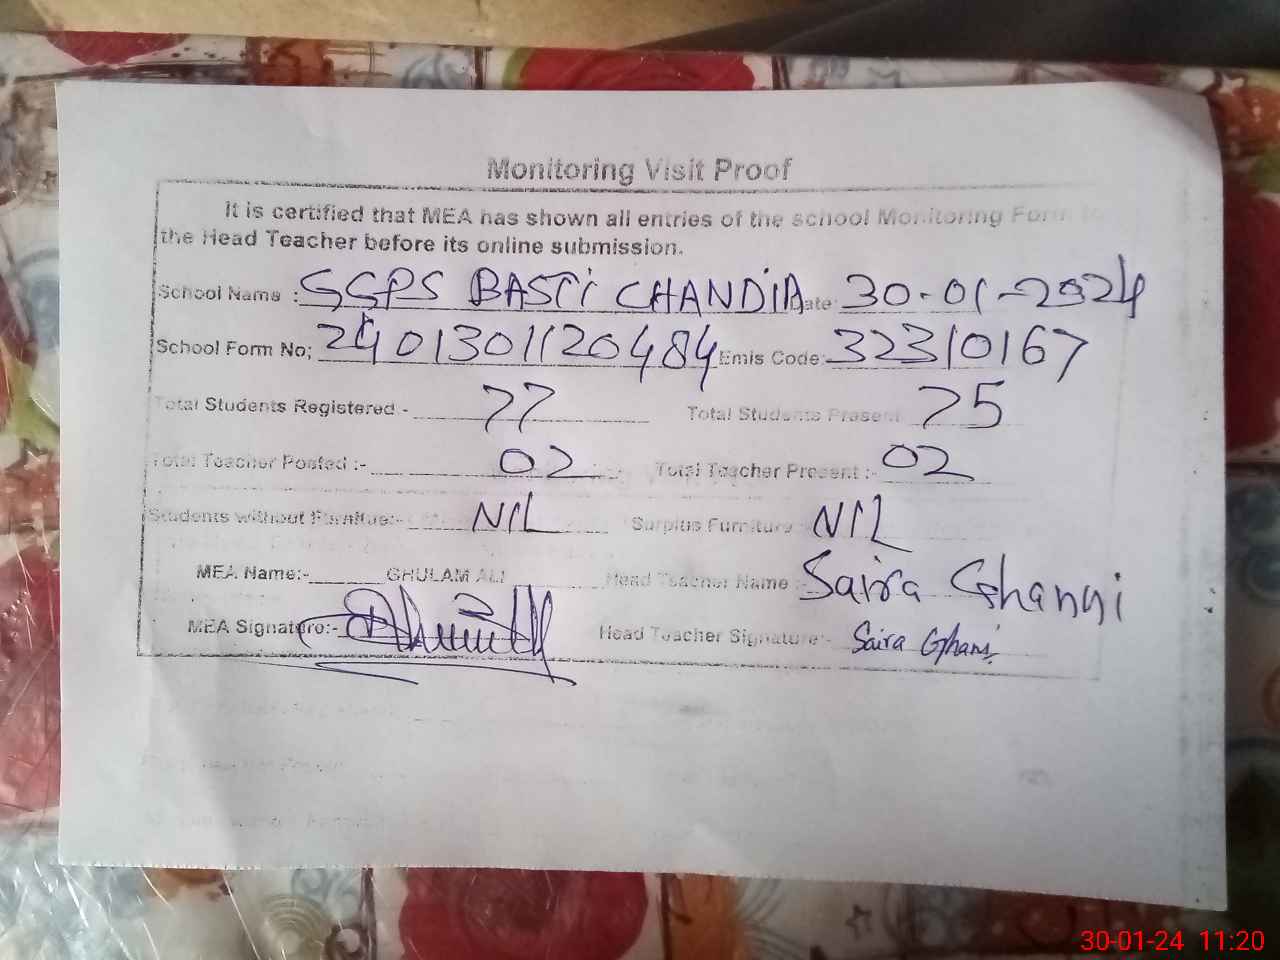 Monitoring Visit Proof
It is certified that MEA has shown all entries of the school Monitoring Form to
the Head Teacher before its online submission.
School Name : GGPS BASTI CHANDIA Date: 30-01-2024
School Form No; 2401301120484 Emis Code: 32310167
Total Students Registered - 77 Total Students Present 75
Total Teacher Posted :- 02 Total Teacher Present :- 02
Students without Furnitue:- NIL Surplus Furniture NIL
MEA Name:- GHULAM ALI Head Teacher Name :- Saira Ghani
MEA Signature:- Head Teacher Signature:- Saira Ghani
30-01-24 11:20